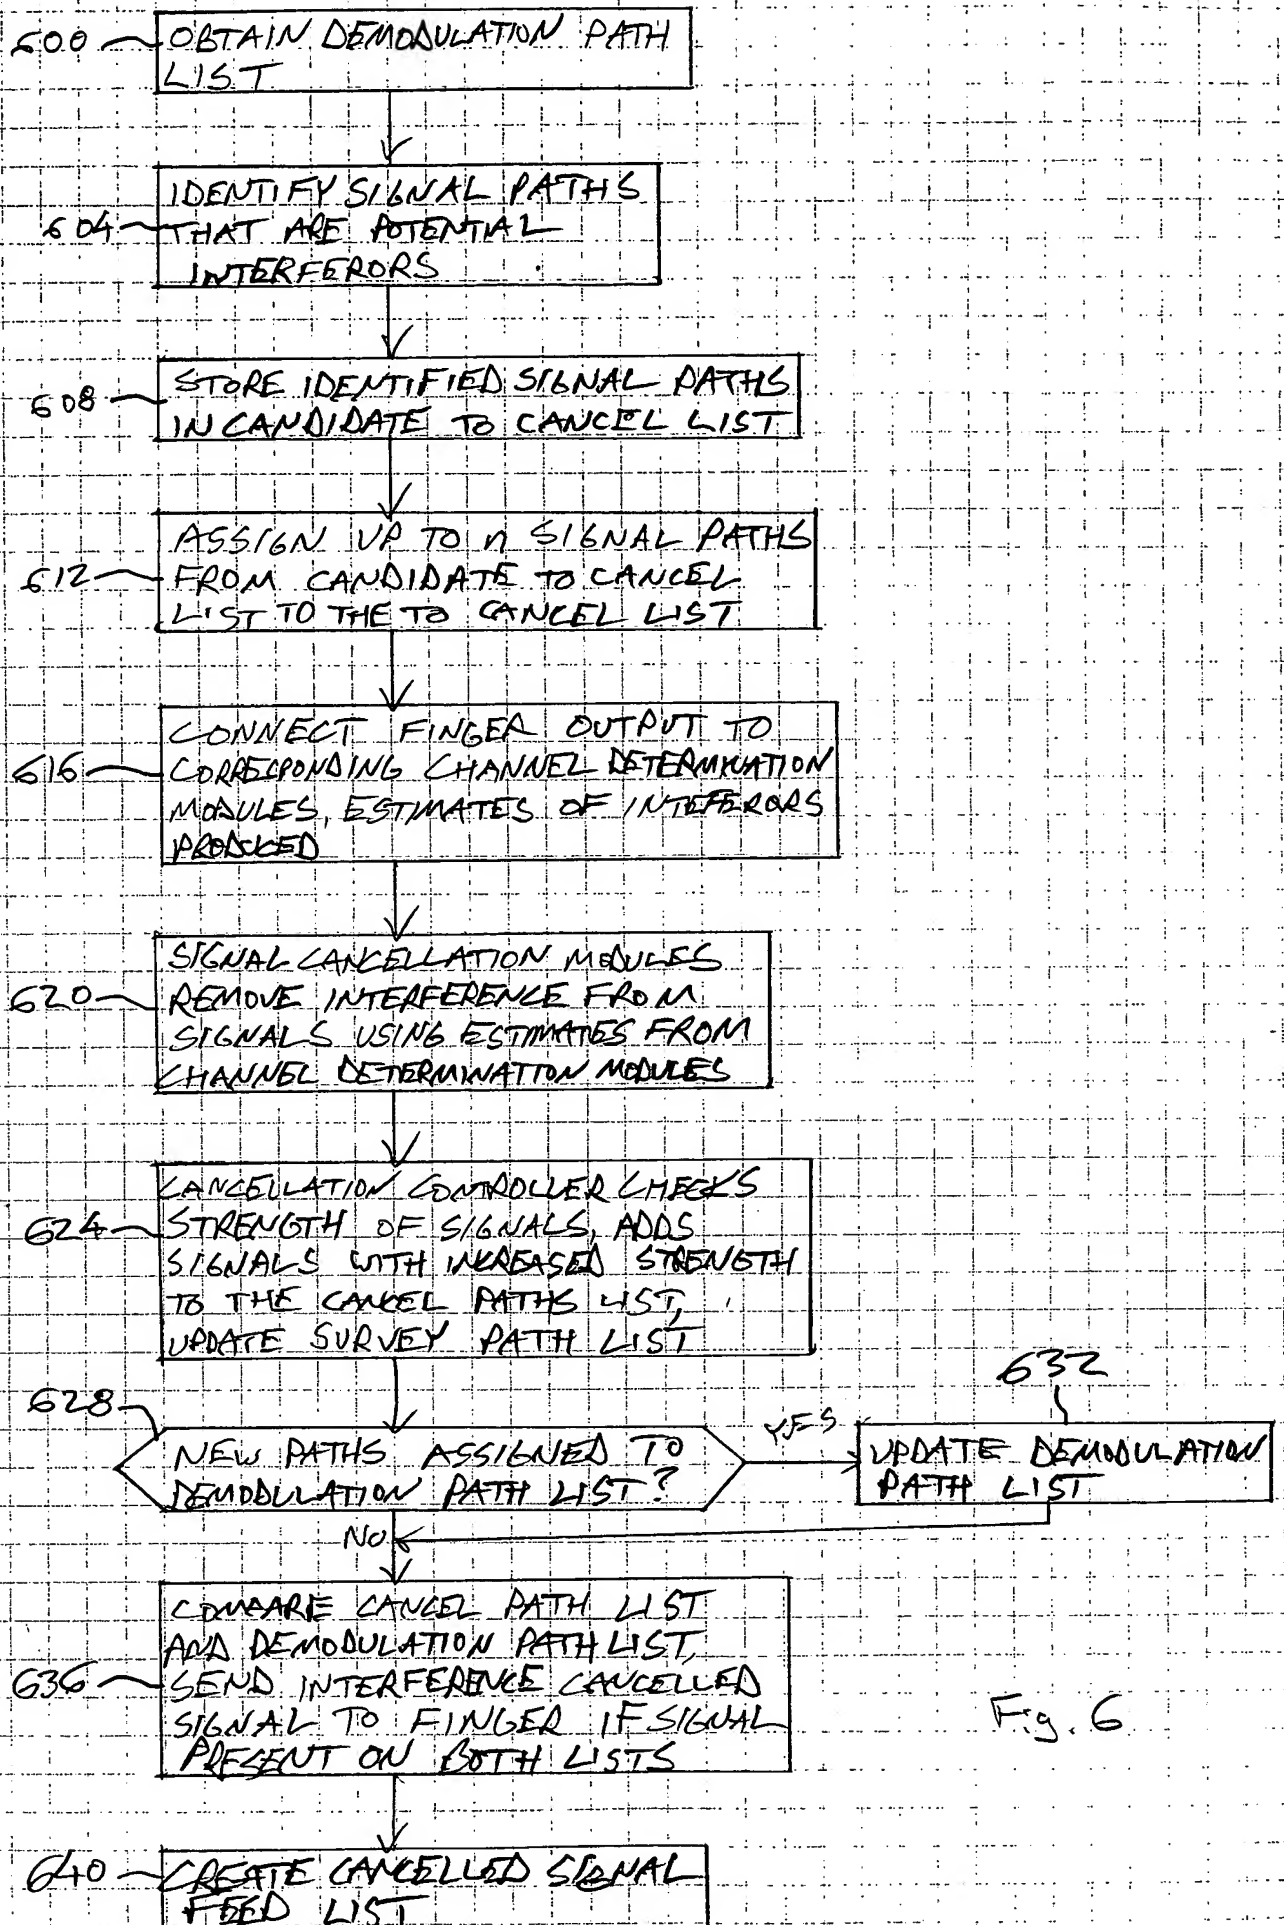 600 OBTAIN DEMODULATION PATH
LIST
IDENTIFY SIGNAL PATHS
604 THAT ARE POTENTIAL
INTERFERORS
608 STORE IDENTIFIED SIGNAL PATHS
IN CANDIDATE TO CANCEL LIST
ASSIGN UP TO n SIGNAL PATHS
612 FROM CANDIDATE TO CANCEL
LIST TO THE TO CANCEL LIST
CONNECT FINGER OUTPUT TO
616 CORRESPONDING CHANNEL DETERMINATION
MODULES, ESTIMATES OF INTEFERORS
PRODUCED
SIGNAL CANCELLATION MODULES
620 REMOVE INTERFERENCE FROM
SIGNALS USING ESTIMATES FROM
CHANNEL DETERMINATION MODULES
CANCELLATION CONTROLLER CHECKS
624 STRENGTH OF SIGNALS, ADDS
SIGNALS WITH INCREASED STRENGTH
TO THE CANCEL PATHS LIST,
UPDATE SURVEY PATH LIST
628
NEW PATHS ASSIGNED TO
DEMODULATION PATH LIST?
YES
632
UPDATE DEMODULATION
PATH LIST
NO
COMPARE CANCEL PATH LIST
AND DEMODULATION PATH LIST,
636 SEND INTERFERENCE CANCELLED
SIGNAL TO FINGER IF SIGNAL
PRESENT ON BOTH LISTS
Fig. 6
640 CREATE CANCELLED SIGNAL
FEED LIST